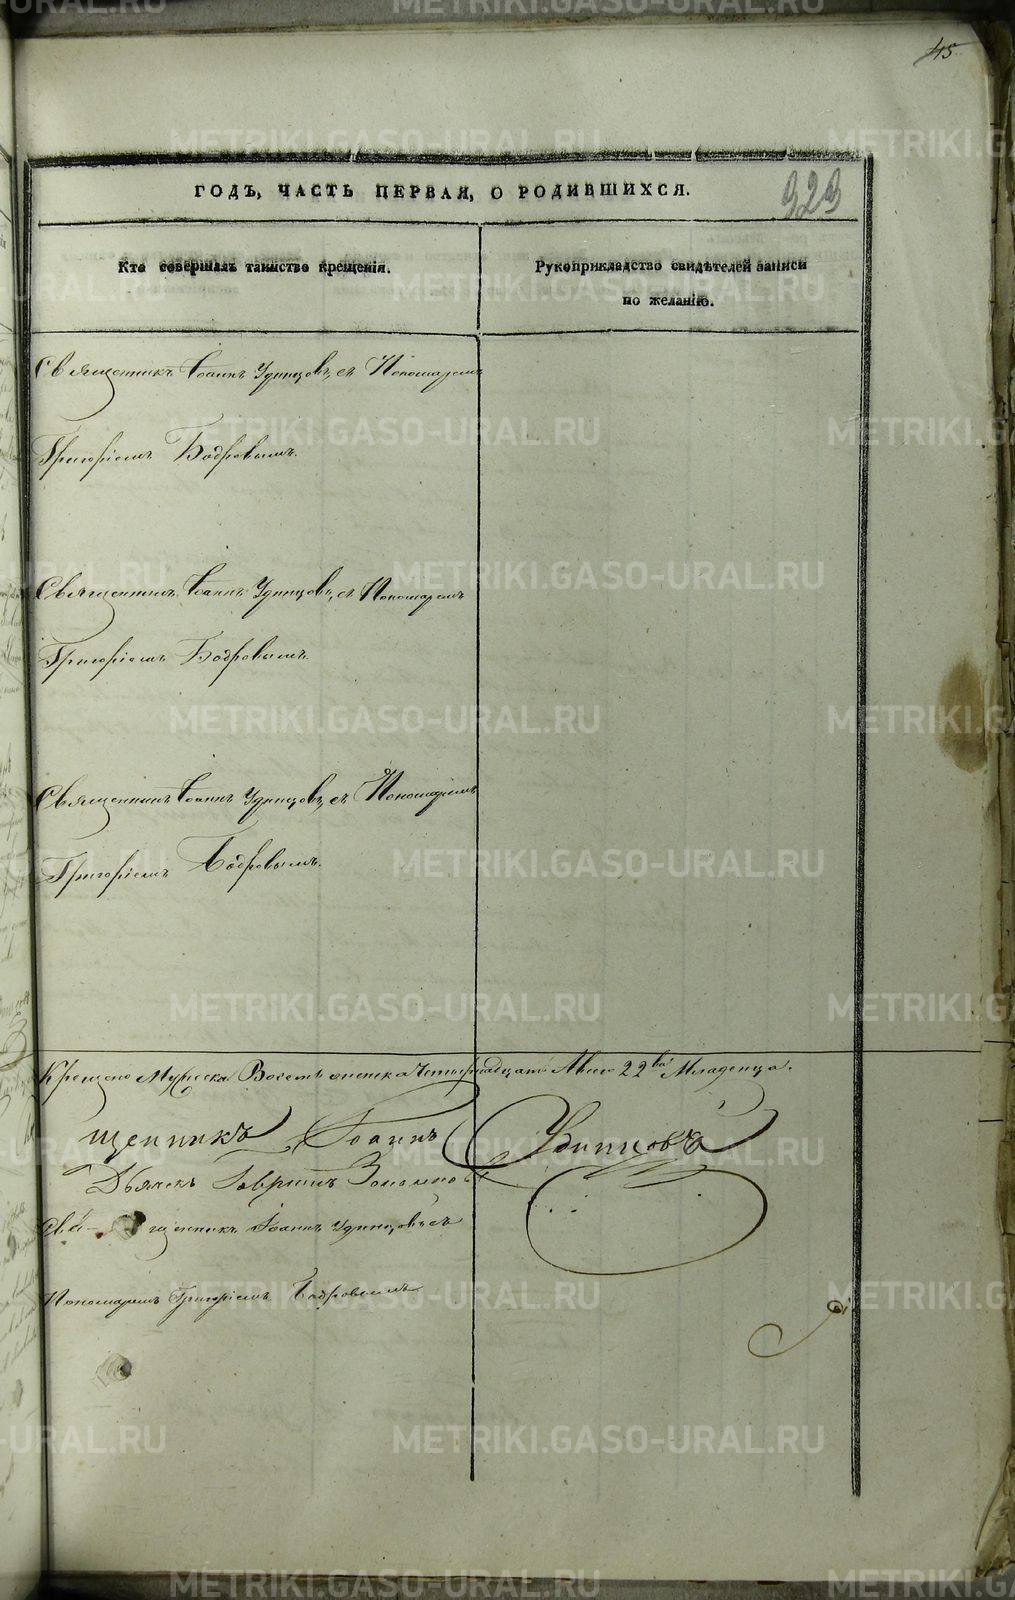 45
ГОДЪ, ЧАСТЬ ПЕРВАЯ, О РОДИВШИХСЯ.
929
Кто совершалъ таинство крещенія.
Рукоприкладство свидѣтелей записи
по желанію.
Священникъ Іоаннъ Удинцовъ, съ Пономаремъ
Григоріемъ Бодровымъ.
Священникъ Іоаннъ Удинцовъ, съ Пономаремъ
Григоріемъ Бодровымъ.
Священникъ Іоаннъ Удинцовъ, съ Пономаремъ
Григоріемъ Бодровымъ.
Крещено Мужеска Восемь Женска Четырнадцать 22 Младенца.
щенникъ Іоаннъ Удинцовъ
Дьячекъ
щенникъ Іоаннъ Удинцовъ съ
Пономаремъ Григоріемъ Бодровымъ
METRIKI.GASO-URAL.RU